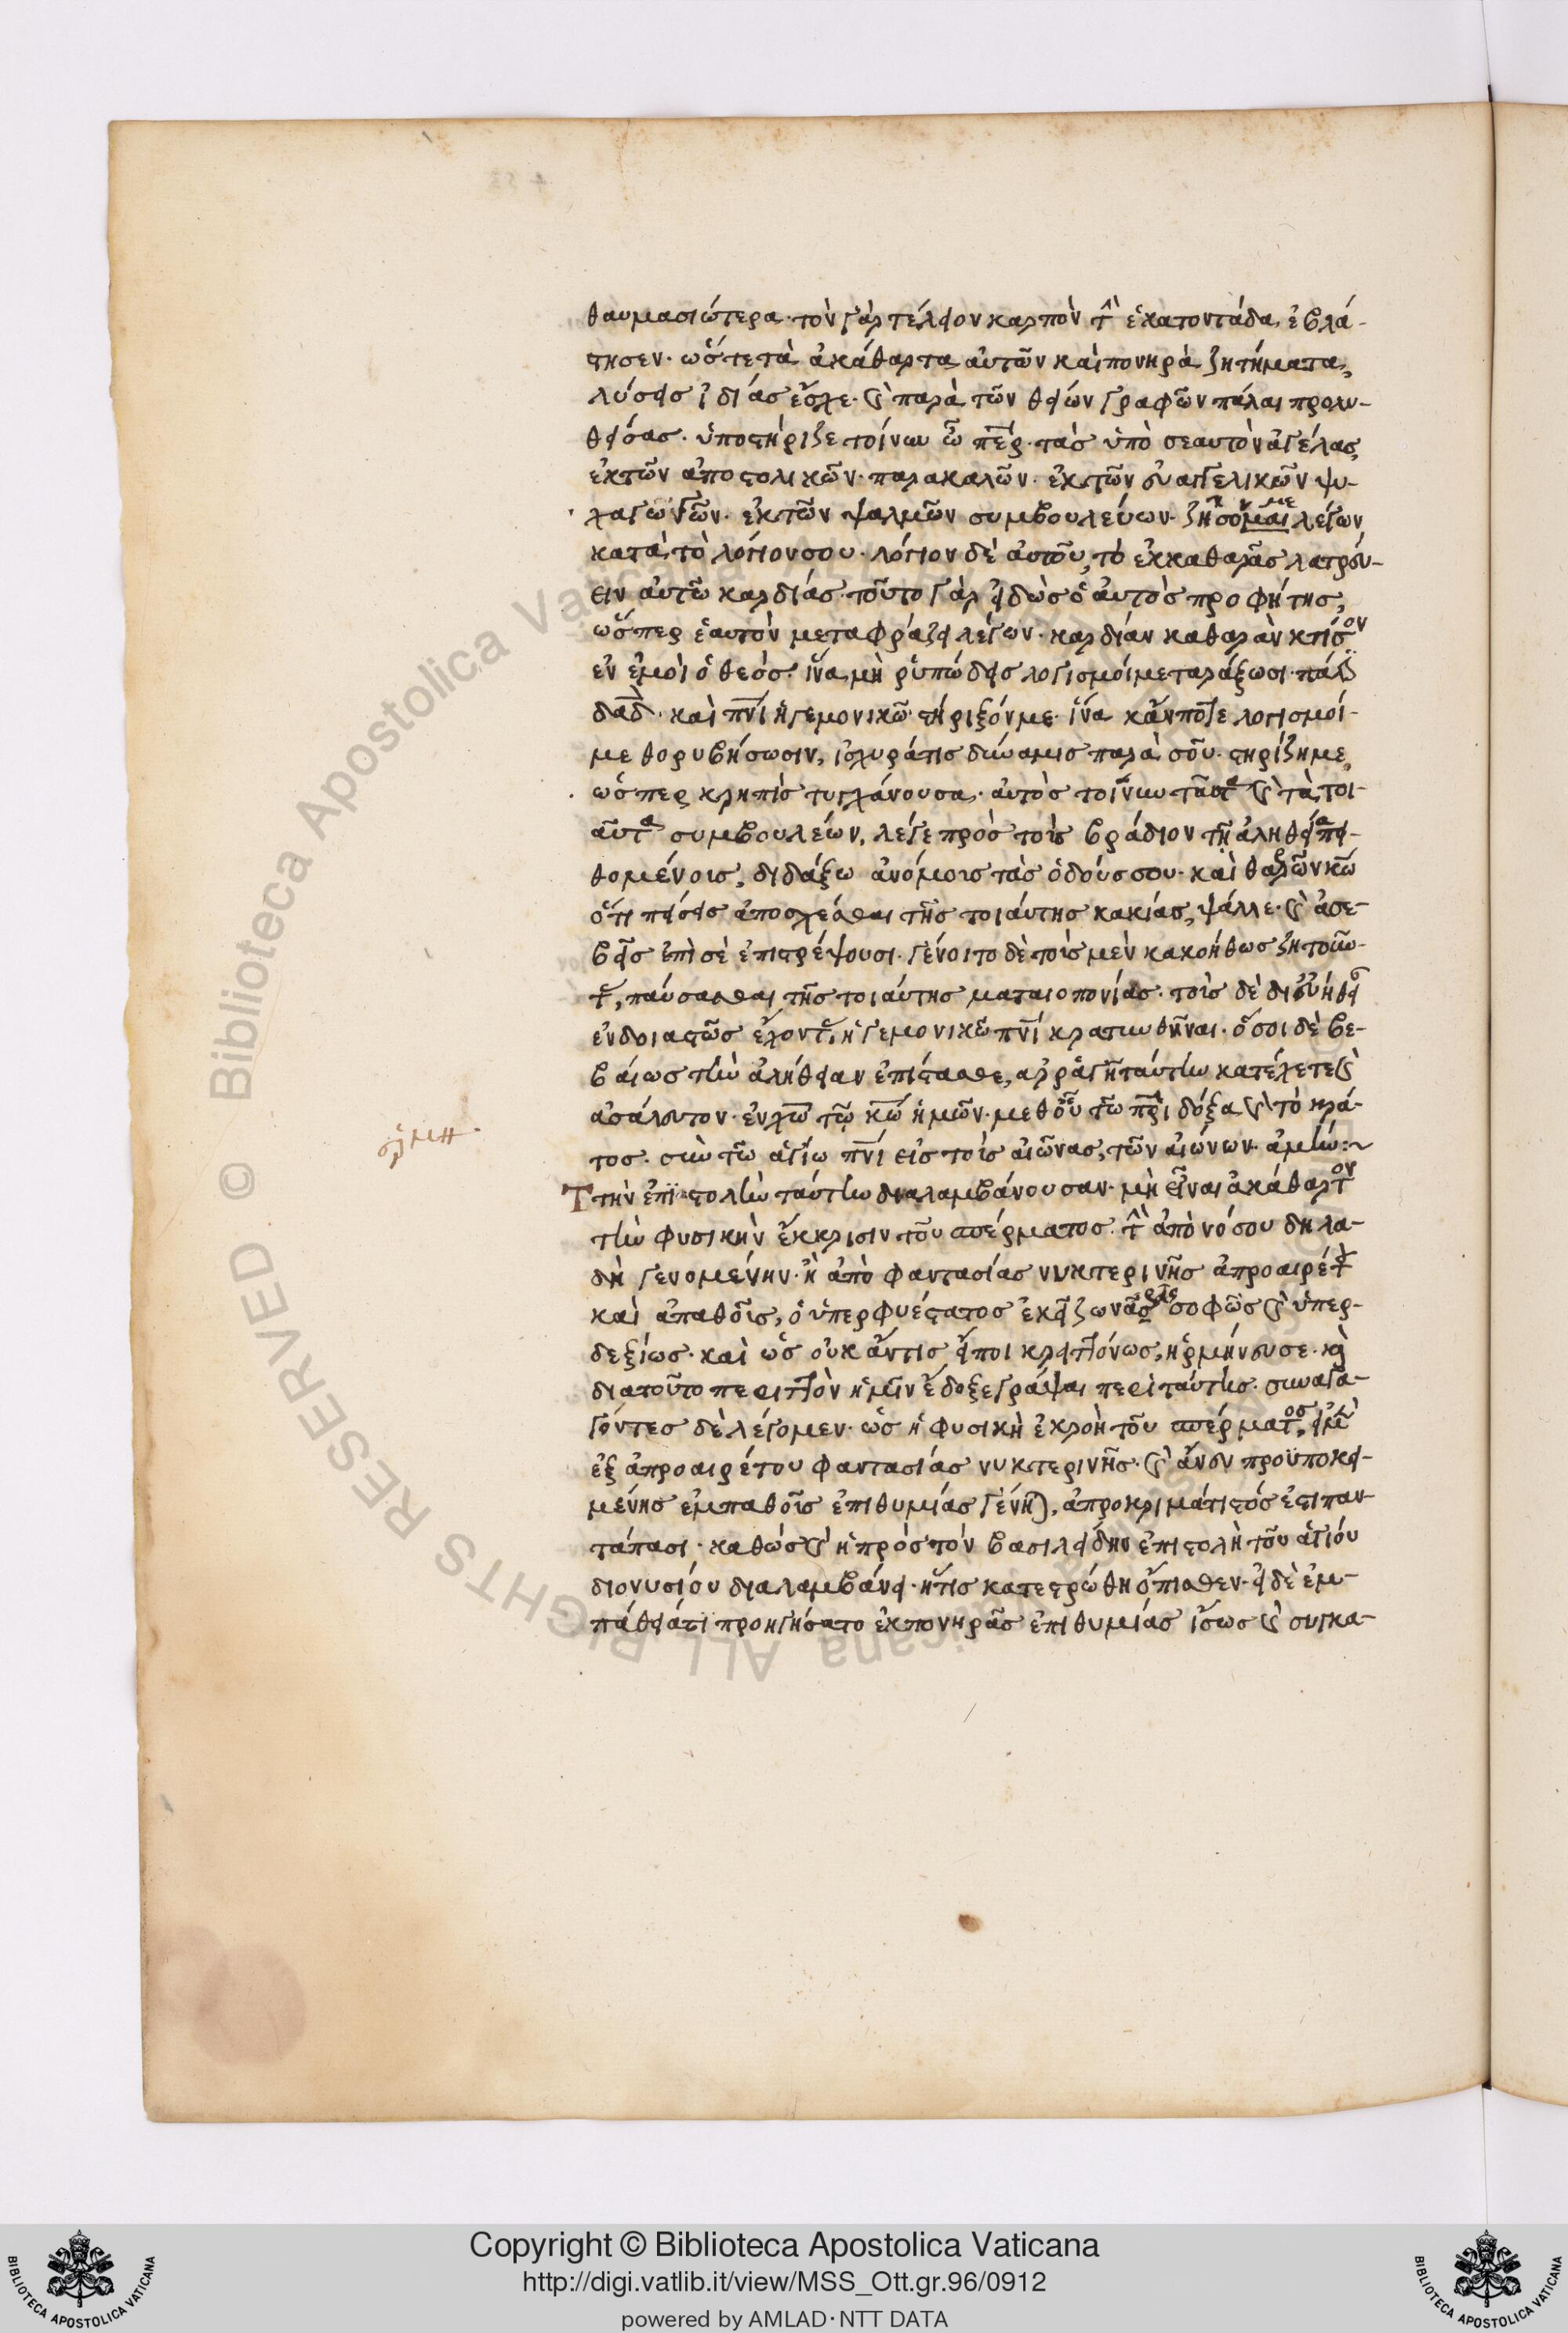 θαυμασιώτερα· τὸν γὰρ τέλειον καρπὸν τ̂ ἑκατοντάδα, ἐβλά-
στησεν· ὥστε τὰ ἀκάθαρτα αὐτῶν καὶ πονηρὰ ζητήματα,
λύσεις ἰδίας ἔσχε· καὶ παρὰ τῶν θείων γραφῶν πάλαι προλη-
φθείσας· ὑποστήριζε τοίνυν ὦ περ· τὰς ὑπὸ σεαυτὸν ἀγέλας,
ἐκ τῶν ἀποστολικῶν παρακαλῶν· ἐκ τῶν εὐαγγελικῶν ψυ-
χαγωγῶν· ἐκ τῶν ψαλμῶν συμβουλεύων· λέγων
κατὰ τὸ λόγιόν σου· λόγιον δὲ αὐτοῦ, τὸ ἐκ καθαρᾶς λατρεύ-
ειν αὐτῶ καρδίας· τοῦτο γὰρ εἰδὼς ὁ αὐτὸς προφήτης,
ὥσπερ ἑαυτὸν μεταφράζει λέγων· καρδίαν καθαρὰν κτίσον
ἐν ἐμοὶ ὁ θεός· ἵνα μὴ ῥυπώδεις λογισμοί με ταράξωσι· πάλ
δαδ· καὶ πνι ἡγεμονικῶ στήριξόν με· ἵνα κἄν ποτε λογισμοί
με θορυβήσωσιν, ἰσχυρά τις δύναμις παρὰ σοῦ στηρίζη με,
ὥσπερ κρηπὶς τυγχάνουσα· αὐτὸς τοίνυν ταῦτα καὶ τὰ τοι-
αῦτα συμβουλεύων, λέγε πρὸς τοὺς βράδιον τῆ ἀληθεία πει-
θομένοις, διδάξω ἀνόμους τὰς ὁδούς σου· καὶ θαρῶν κω
ὅτι πείσεις ἀποσχέσθαι τῆς τοιαύτης κακίας, ψάλλε· καὶ ἀσε-
βεῖς ἐπὶ σὲ ἐπιστρέψουσι· γένοιτο δὲ τοὺς μὲν κακοήθως ζητοῦν-
τ, παύσασθαι τῆς τοιαύτης ματαιοπονίας· τοὺς δὲ δι εὐήθει
ἐνδοιαστῶς ἔχοντ, ἡγεμονικῶ πνι κρατυνθῆναι· ὅσοι δὲ βε-
βαίως τὴν ἀλήθειαν ἐπίστασθε, ἀρραγῆ ταύτην κατέχετε καὶ
ἀσάλευτον· ἐν χω τῶ κω ἡμῶν· μεθ οὗ τῶ πρι δόξα καὶ τὸ κρά-
τος· σὺν τῶ ἁγίω πνι εἰς τοὺς αἰῶνας, τῶν αἰώνων· ἀμήν:~
ἑρμη·
Τ τὴν ἐπιστολὴν ταύτην διαλαμβάνουσαν· μὴ εἶναι ἀκάθαρτον
τὴν φυσικὴν ἔκκρισιν τοῦ σπέρματος· τ̂ ἀπὸ νόσου δηλα-
δὴ γενομένην· ἢ ἀπὸ φαντασίας νυκτερινῆς ἀπροαιρέτ
καὶ ἀπαθοῦς, ὁ ὑπερφυέστατος ἐκεῖ ζωνᾶς σοφῶς καὶ ὑπερ-
δεξίως· καὶ ὡς οὐκ ἄν τις εἴποι κρειττόνως, ἡρμήνευσε· καὶ
διατοῦτο περιττὸν ἡμῖν ἔδοξε γράψαι περὶ ταύτης· συναγα-
γόντες δὲ λέγομεν· ὡς ἡ φυσικὴ ἐκροὴ τοῦ σπέρματος, εἰ μὲν
ἐξ ἀπροαιρέτου φαντασίας νυκτερινῆς· καὶ ἄνευ προϋποκει-
μένης ἐμπαθοῦς ἐπιθυμίας γένηται, ἀπροκριμάτιστός ἐστι παν-
τάπασι· καθὼς καὶ ἡ πρὸς τὸν βασιλείδην ἐπιστολὴ τοῦ ἁγίου
διονυσίου διαλαμβάνει· ἥτις κατεστρώθη ὄπισθεν· εἰ δὲ ἐμ-
πάθειά τι προηγήσατο ἐκ πονηρᾶς ἐπιθυμίας ἴσως καὶ συγκα-
Copyright © Biblioteca Apostolica Vaticana
http://digi.vatlib.it/view/MSS_Ott.gr.96/0912
powered by AMLAD·NTT DATA
BIBLIOTECA APOSTOLICA VATICANA
BIBLIOTECA APOSTOLICA VATICANA
Biblioteca Apostolica Vaticana ALL RIGHTS RESERVED ©